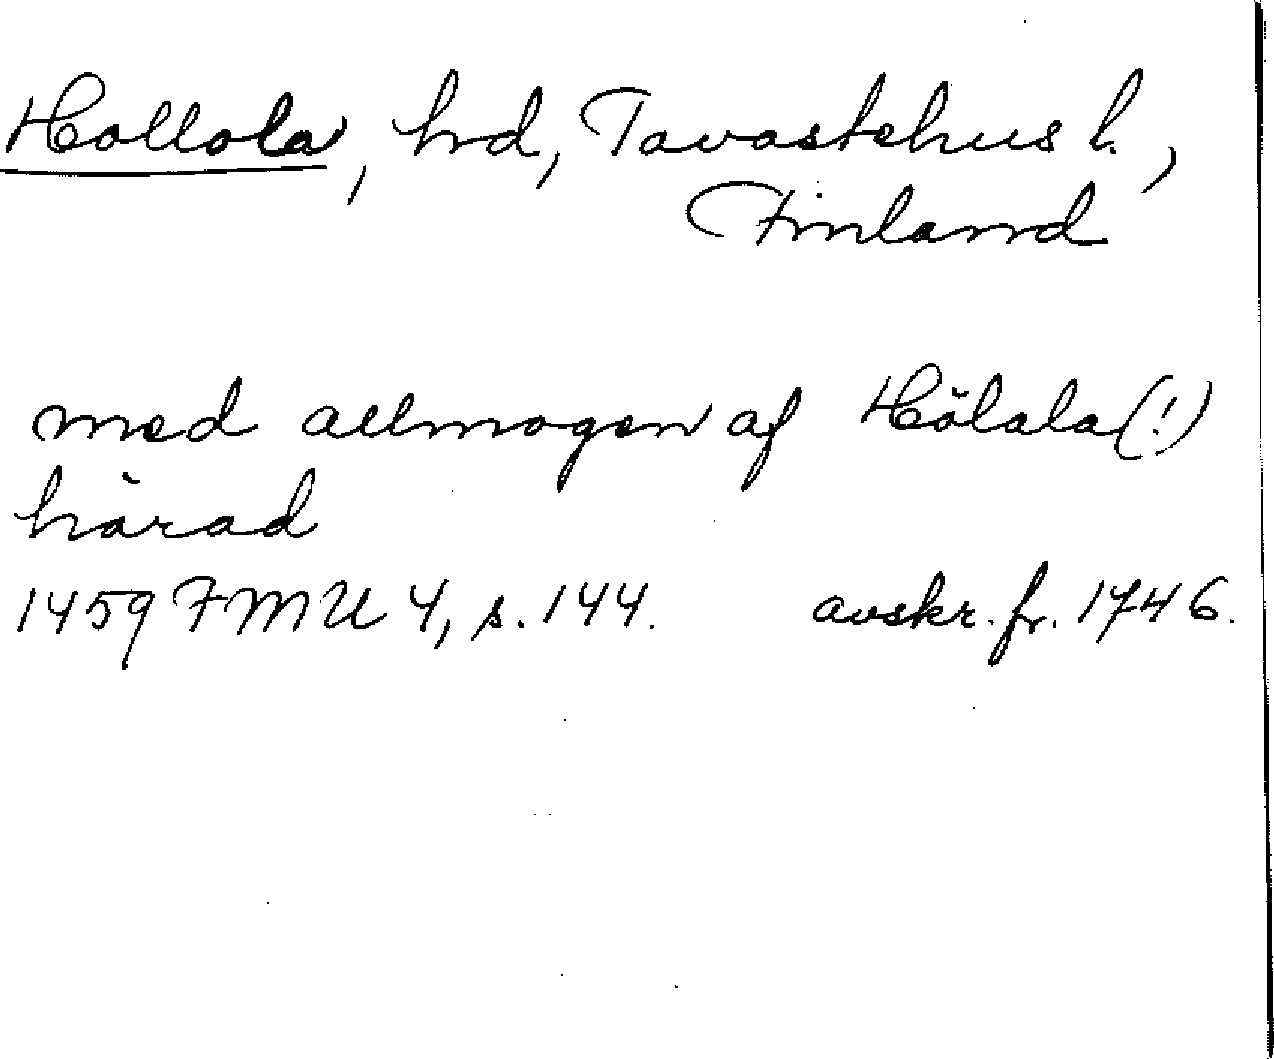 Hollola, hrd, Tavastehus l.,
Finland
med allmogen af Hölala (!)
härad
1459 FMU 4, s. 144. avskr. fr. 1746.